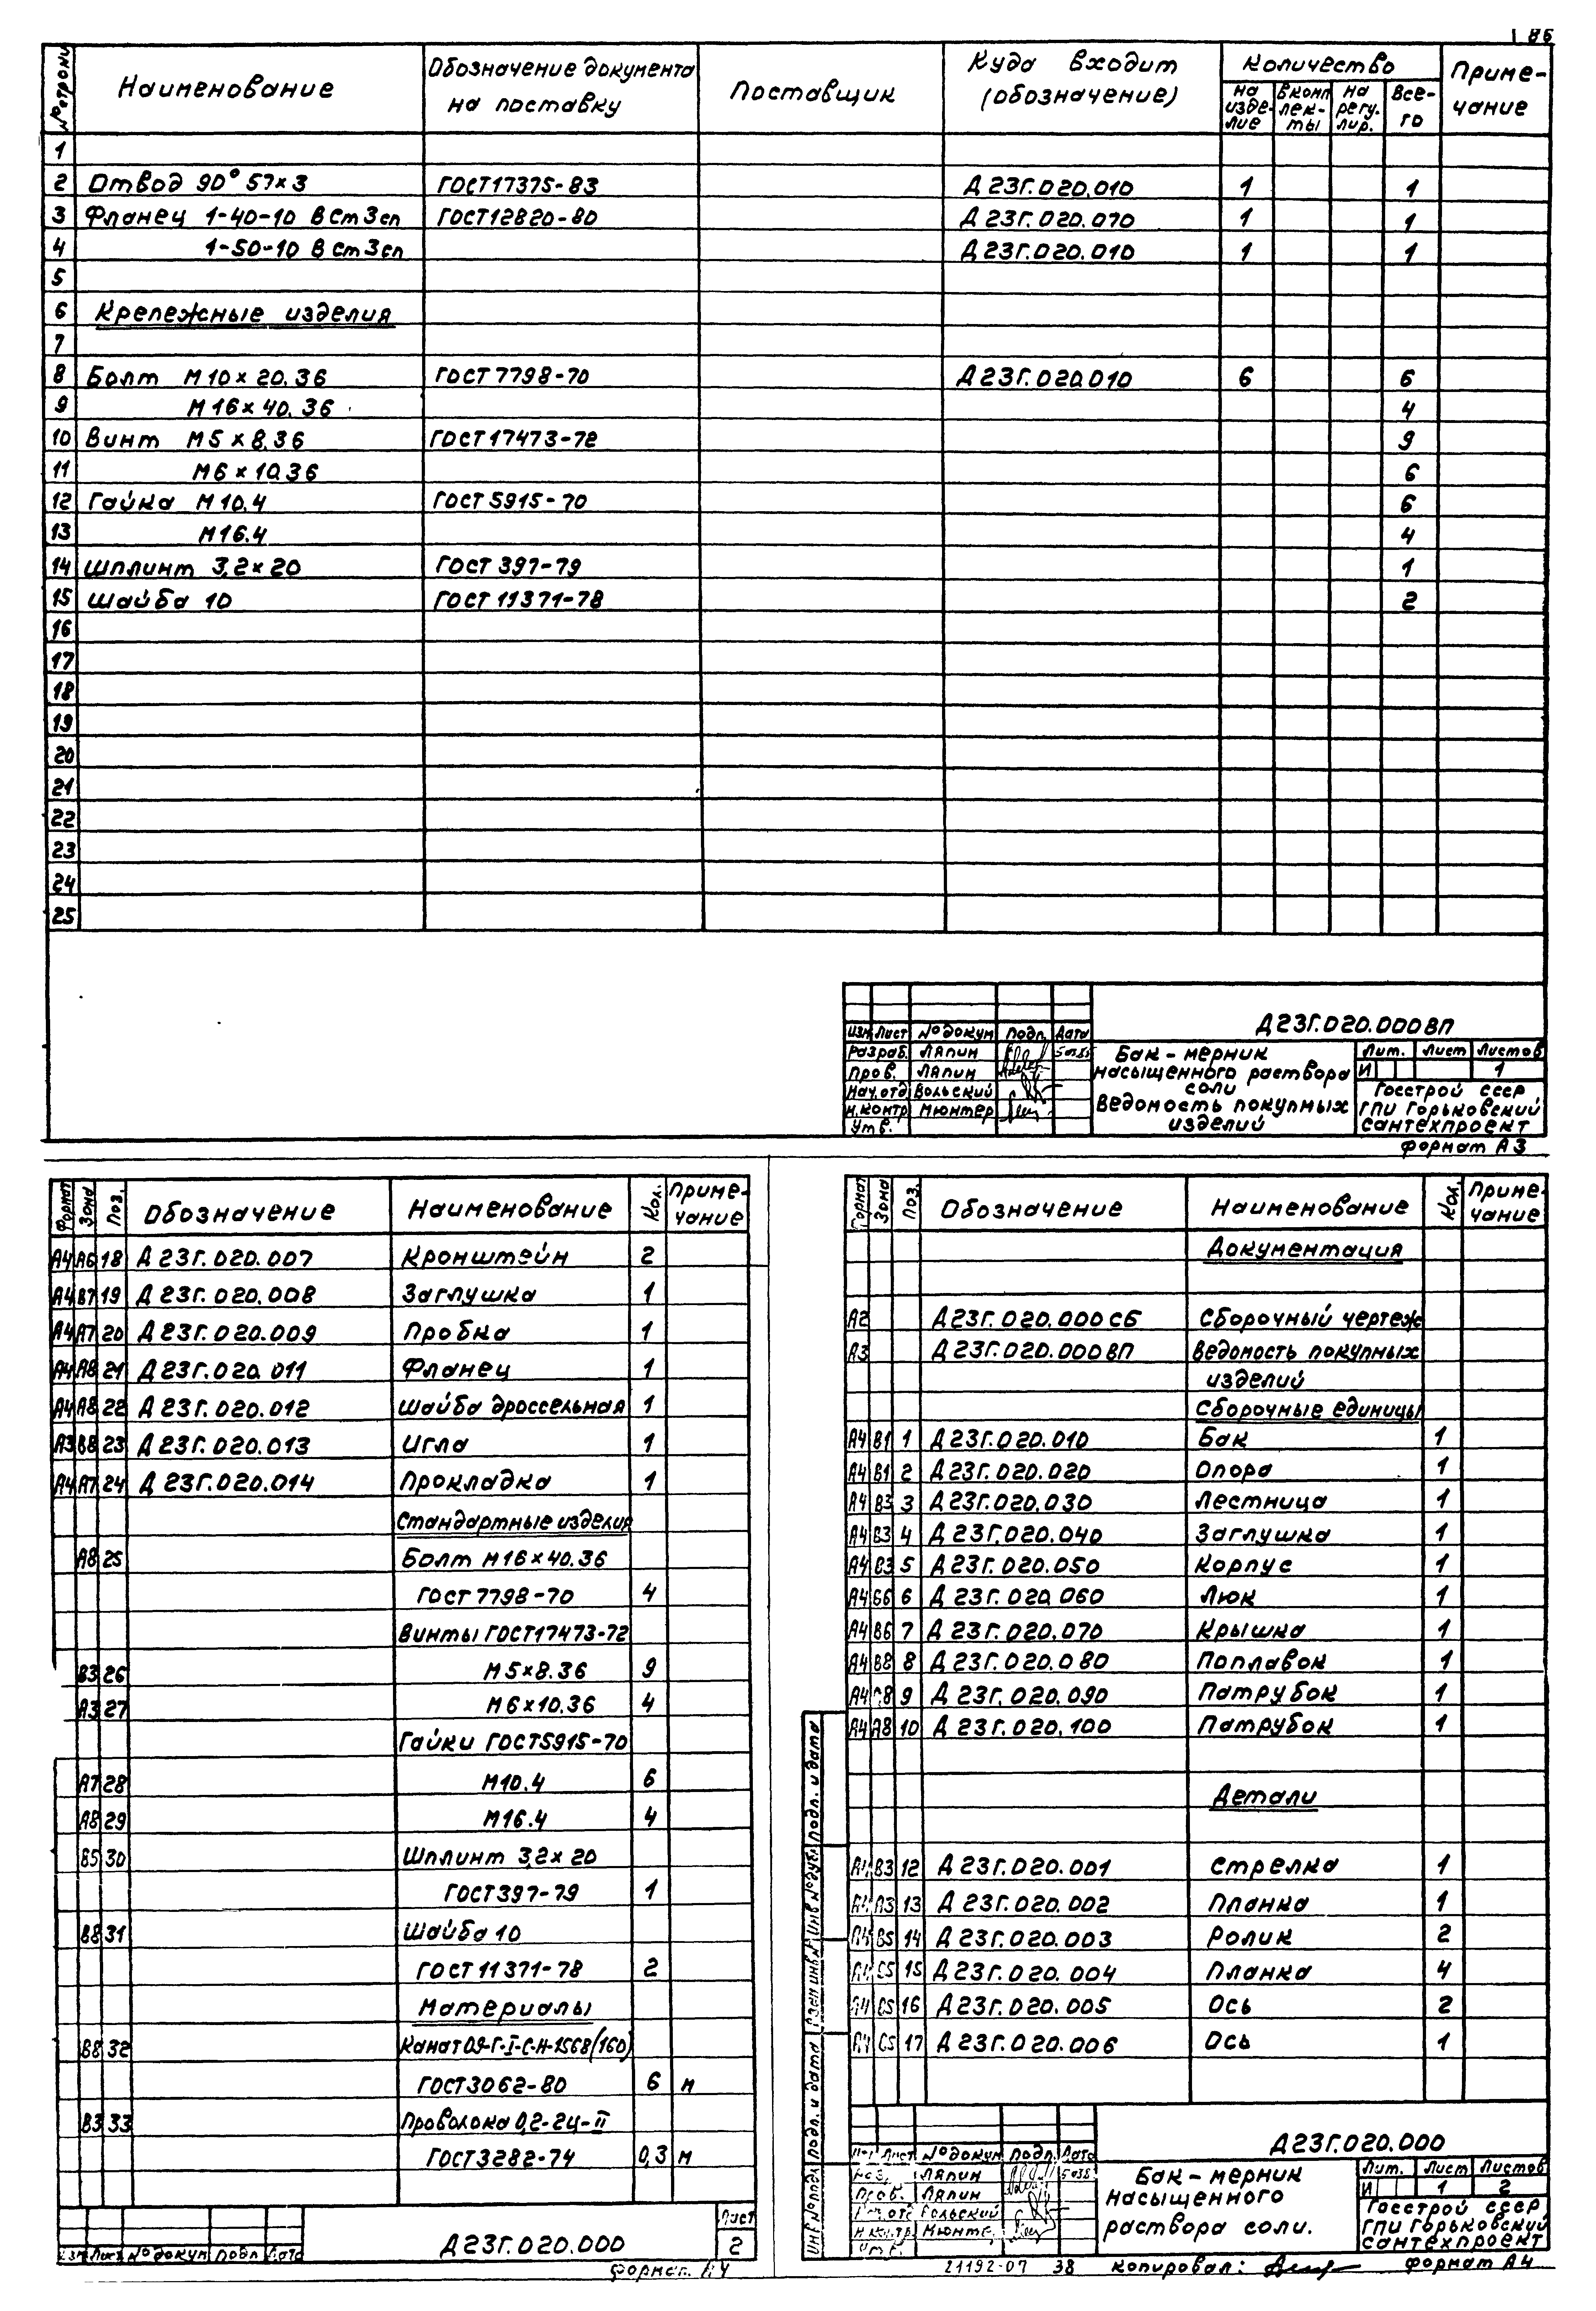 86
№ строки Наименование Обозначение документа на поставку Поставщик Куда входит (обозначение) Количество на изделие в комплекты на регулир. Всего Примечание
1
2 Отвод 90° 57×3 ГОСТ17375-83 Д23Г.020.010 1 1
3 Фланец 1-40-10 ВСт3сп ГОСТ12820-80 Д23Г.020.070 1 1
4 1-50-10 ВСт3сп Д23Г.020.010 1 1
5
6 Крепежные изделия
7
8 Болт М10×20.36 ГОСТ7798-70 Д23Г.020.010 6 6
9 М16×40.36 4
10 Винт М5×8.36 ГОСТ17473-72 9
11 М6×10.36 6
12 Гайка М10.4 ГОСТ5915-70 6
13 М16.4 4
14 Шплинт 3,2×20 ГОСТ397-79 1
15 Шайба 10 ГОСТ11371-78 2
16
17
18
19
20
21
22
23
24
25
Д23Г.020.000ВП
Изм Лист № докум Подп. Дата
Разраб. Ляпин
Пров. Ляпин
Нач.отд Вольский
Н.контр Мюнтер
Утв.
Бак-мерник
насыщенного раствора
соли
Ведомость покупных
изделий
Лит. Лист Листов
И 1
Госстрой СССР
ГПИ Горьковский
Сантехпроект
Формат А3
Формат Зона Поз. Обозначение Наименование Кол. Примечание
А4 А6 18 Д23Г.020.007 Кронштейн 2
А4 В7 19 Д23Г.020.008 Заглушка 1
А4 А7 20 Д23Г.020.009 Пробка 1
А4 А8 21 Д23Г.020.011 Фланец 1
А4 А8 22 Д23Г.020.012 Шайба дроссельная 1
А3 В8 23 Д23Г.020.013 Игла 1
А4 А7 24 Д23Г.020.014 Прокладка 1
Стандартные изделия
А8 25 Болт М16×40.36
ГОСТ7798-70 4
Винты ГОСТ17473-72
В3 26 М5×8.36 9
А3 27 М6×10.36 4
Гайки ГОСТ5915-70
А7 28 М10.4 6
А8 29 М16.4 4
Б5 30 Шплинт 3,2×20
ГОСТ397-79 1
В8 31 Шайба 10
ГОСТ11371-78 2
Материалы
В8 32 Канат 0,9-Г-I-С-Н-1568(160)
ГОСТ3062-80 6 м
В3 33 Проволока 0,2-2Ц-II
ГОСТ3282-74 0,3 м
Изм Лист № докум Подп. Дата
Д23Г.020.000
Лист
2
Формат А4
Формат Зона Поз. Обозначение Наименование Кол. Примечание
Документация
А2 Д23Г.020.000СБ Сборочный чертеж
А3 Д23Г.020.000ВП Ведомость покупных
изделий
Сборочные единицы
А4 В1 1 Д23Г.020.010 Бак 1
А4 В1 2 Д23Г.020.020 Опора 1
А4 В3 3 Д23Г.020.030 Лестница 1
А4 В3 4 Д23Г.020.040 Заглушка 1
А4 В3 5 Д23Г.020.050 Корпус 1
А4 Б6 6 Д23Г.020.060 Люк 1
А4 В6 7 Д23Г.020.070 Крышка 1
А4 В8 8 Д23Г.020.080 Поплавок 1
А4 9 Д23Г.020.090 Патрубок 1
А4 А8 10 Д23Г.020.100 Патрубок 1
Детали
В3 12 Д23Г.020.001 Стрелка 1
А3 13 Д23Г.020.002 Планка 1
В5 14 Д23Г.020.003 Ролик 2
С5 15 Д23Г.020.004 Планка 4
С5 16 Д23Г.020.005 Ось 2
С5 17 Д23Г.020.006 Ось 1
Подп. и дата
Инв № дубл
Взам инв №
Подп. и дата
Инв № подл
Д23Г.020.000
Лист № докум Подп. Дата
Ляпин
Пров. Ляпин
Вольский
Н.контр. Мюнте.
Утв.
Бак-мерник
насыщенного
раствора соли.
Лит. Лист Листов
И 1 2
Госстрой СССР
ГПИ Горьковский
Сантехпроект
21192-07 38 Копировал: Формат А4